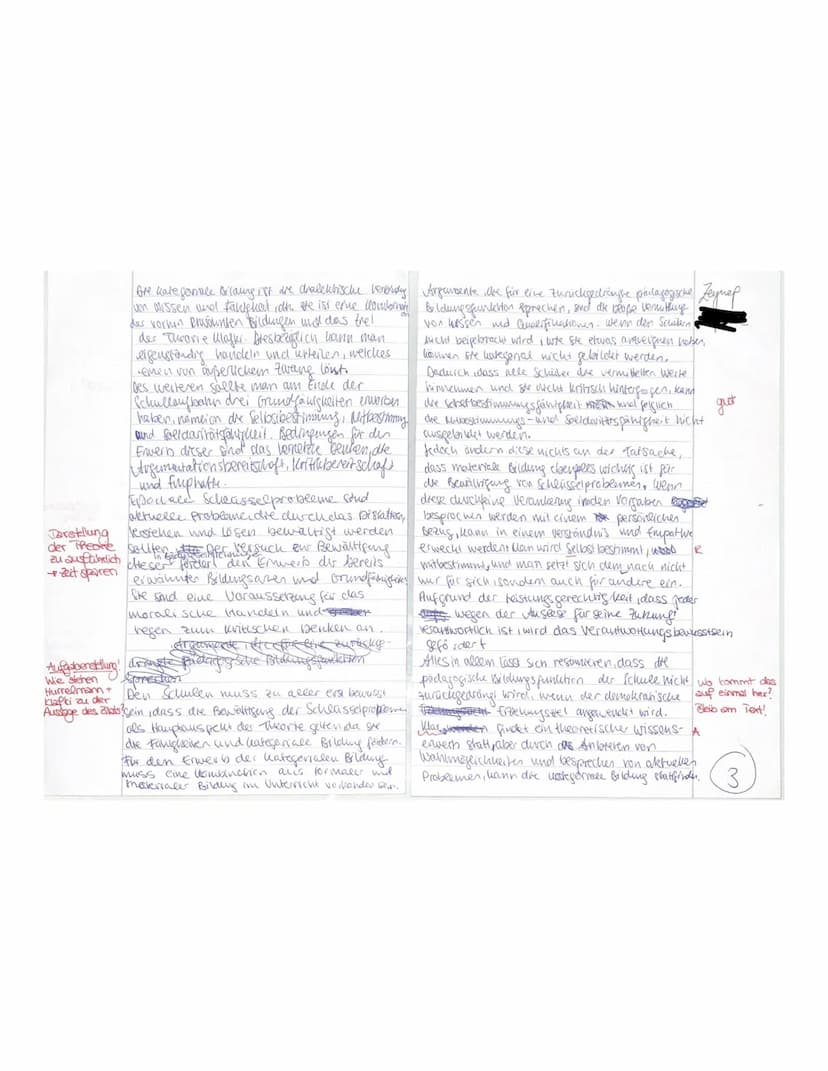 Die kategoriale Bildung ist die dialektische Verbindung
von Wissen und Fähigkeit, d.h. sie ist eine Kombination
der vorhin erwähnten Bildungen und das Ziel
der Theorie Klafki. Diesbezüglich kann man
eigenständig handeln und urteilen, welches
einen von äußerlichem Zwang löst.
Des weiteren sollte man am Ende der
Schullaufbahn drei Grundfähigkeiten erworben
haben, nämlich die Selbstbestimmung, Mitbestimmung
und Solidaritätsfähigkeit. Bedingungen für den
Erwerb dieser sind das vernetzte Denken, die
Argumentationsbereitschaft, Kritikbereitschaft
und Emphatie.
Epochale Schlüsselprobleme sind
aktuelle Probleme, die durch das Diskutieren,
Verstehen und Lösen bewältigt werden
sollten. Der Versuch zur Bewältigung
dieser fördert den Erwerb der bereits
erwähnten Bildungsarten und Grundfähigkeiten
Sie sind eine Voraussetzung für das
moralische Handeln und
regen zum kritischen Denken an.
Argumente, die für eine zurückge-
drängte pädagogische Bildungsfunktion
sprechen
Den Schulen muss zu aller erst bewusst
sein, dass die Bewältigung der Schlüsselprobleme
als Hauptaspekt der Theorie gelten, da sie
die Fähigkeiten und kategoriale Bildung fördern.
Für den Erwerb der kategorialen Bildung
muss eine Kombination aus formaler und
materialer Bildung im Unterricht vorhanden sein.
Darstellung
der Theorie
zu ausführlich
→ Zeit sparen
Aufgabenstellung!
Wie stehen
Hurrelmann +
Klafki zu der
Aussage des Zitats?
Argumente, die für eine zurückgedrängte pädagogische
Bildungsfunktion sprechen, sind die bloße Vermittlung
von Wissen und Wenn den Schülern
nicht beigebracht wird, wie sie etwas anzueignen haben,
können sie kategorial nicht gebildet werden.
Dadurch, dass alle Schüler die vermittelten Werte
hinnehmen und sie nicht kritisch hinterfragen, kann
die Selbstbestimmungsfähigkeit und folglich
die Mitbestimmungs- und Solidaritätsfähigkeit nicht
ausgebildet werden.
Jedoch ändern diese nichts an der Tatsache,
dass materiale Bildung ebenfalls wichtig ist für
die Bewältigung von Schlüsselproblemen. Wenn
diese durch eine Verankerung in den Vorgaben
besprochen werden mit einem persönlichen
Bezug, kann in einem Verständnis und Empathie
erweckt werden. Man wird selbstbestimmt,
mitbestimmt, und man setzt sich dem nach nicht
nur für sich, sondern auch für andere ein.
Aufgrund der Leistungsgerechtigkeit, dass jeder
wegen der Auslese für seine Zukunft
verantwortlich ist, wird das Verantwortungsbewusstsein
gefördert
Alles in allem lässt sich resümieren, dass die
pädagogische Bildungsfunktion der Schule nicht
zurückgedrängt wird, wenn der demokratische
Erziehungsstil angewendet wird.
Klar findet ein theoretischer Wissens-
erwerb statt, aber durch das Anbieten von
Wahlmöglichkeiten und besprechen von aktuellen
Problemen, kann die kategoriale Bildung stattfinden.
Zeynep
gut
R
Wo kommt das
auf einmal her?
Bleib am Text!
A
3